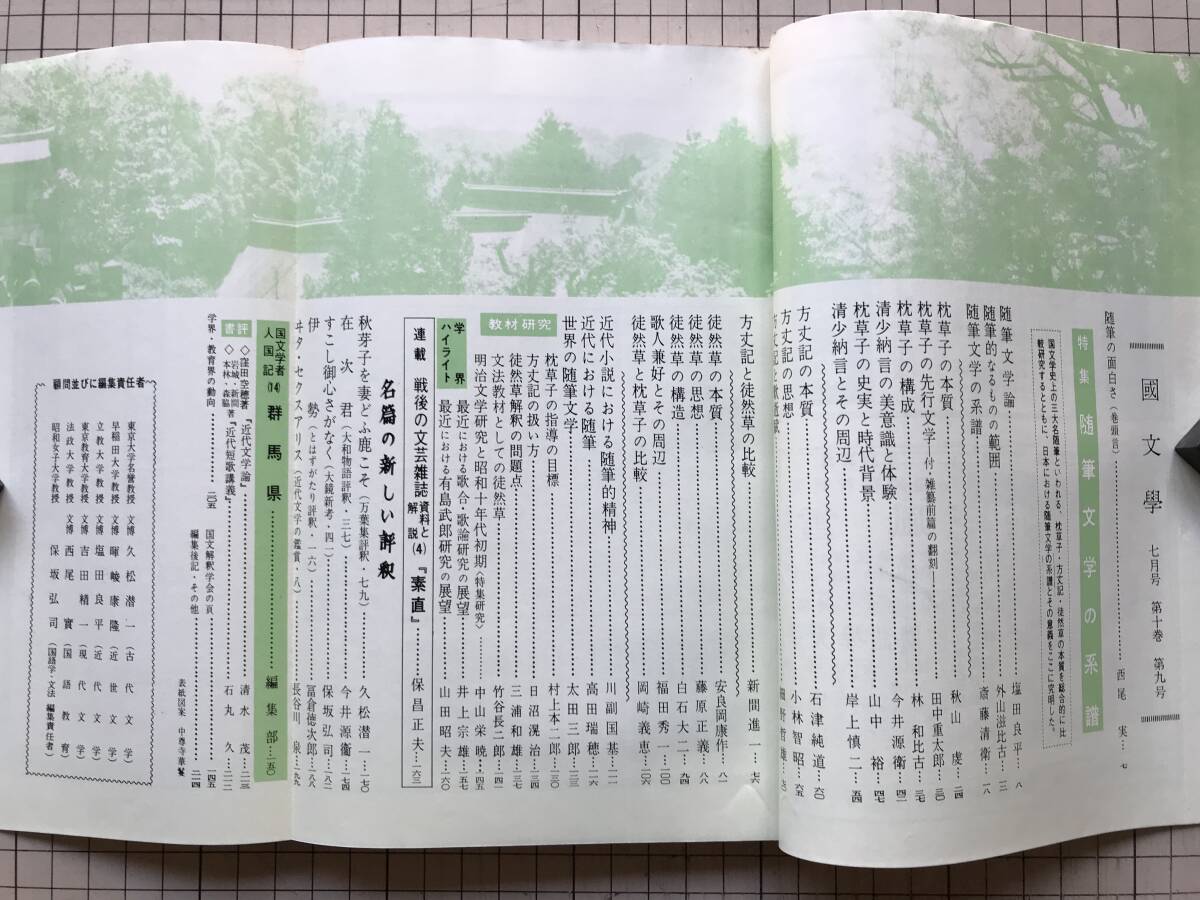 國文學 七月号 第十巻 第九号
随筆の面白さ(巻頭言)……西尾実…七
特集 随筆文学の系譜
国文学史上の三大名随筆といわれる、枕草子・方丈記・徒然草の本質を総合的に比
較研究するとともに、日本における随筆文学の系譜とその意義をここに究明した。
随筆文学論……塩田良平…八
随筆的なるものの範囲……外山滋比古…一三
随筆文学の系譜……斎藤清衛…一八
枕草子の本質……秋山虔…二四
枕草子の先行文学―付 雑纂前篇の翻刻―……田中重太郎…三〇
枕草子の構成……林和比古…三七
清少納言の美意識と体験……今井源衛…四二
枕草子の史実と時代背景……山中裕…四七
清少納言とその周辺……岸上慎二…五四
方丈記の本質……石津純道…六〇
方丈記の思想……小林智昭…六五
方丈記と徒然草の比較……新間進一…七六
徒然草の本質……安良岡康作…八一
徒然草の思想……藤原正義…八八
徒然草の構造……白石大二…九四
歌人兼好とその周辺……福田秀一…一〇〇
徒然草と枕草子の比較……岡崎義恵…一〇六
近代小説における随筆的精神……川副国基…一一二
近代における随筆……高田瑞穂…一一六
世界の随筆文学……太田三郎…一二三
教材研究
枕草子の指導の目標……村上本二郎…一三〇
方丈記の扱い方……日沼滉治…一三三
徒然草解釈の問題点……三浦和雄…一三七
文法教材としての徒然草……竹谷長二郎…一四一
明治文学研究と昭和十年代初期〈特集研究〉……中山栄暁…一四五
学界ハイライト
最近における歌合・歌論研究の展望……井上宗雄…一五七
最近における有島武郎研究の展望……山田昭夫…一六〇
連載 戦後の文芸雑誌 資料と解説(4) 『素直』……保昌正夫…一六三
名篇の新しい評釈
秋芽子を妻どふ鹿こそ(万葉集評釈・七九)……久松潜一…一七〇
在次君(大和物語評釈・三七)……今井源衛…一七四
すこし御心さがなく(大鏡新考・四一)……保坂弘司…一八二
伊勢(とはずがたり評釈・一六)……冨倉徳次郎…一八八
ヰタ・セクスアリス(近代文学の鑑賞・八)……長谷川泉…一九五
国文学者人国記(14) 群馬県……編集部…一五〇
書評
◇窪田空穂著『近代文学論』……清水茂…二一三
◇岩城・新間・本林・森脇著『近代短歌講義』……石丸久…二一二
学界・教育界の動向……二〇五
国文解釈学会の頁……一四五
編集後記・その他……二一四
表紙図案 中尊寺華鬘
顧問並びに編集責任者
東京大学名誉教授 文博 久松潜一(古代文学)
早稲田大学教授 文博 暉峻康隆(近世文学)
立教大学教授 文博 塩田良平(近代文学)
東京教育大学教授 文博 吉田精一(現代文学)
法政大学教授 文博 西尾實(国語教育)
昭和女子大学教授 保坂弘司(国語学・文法 編集責任者)